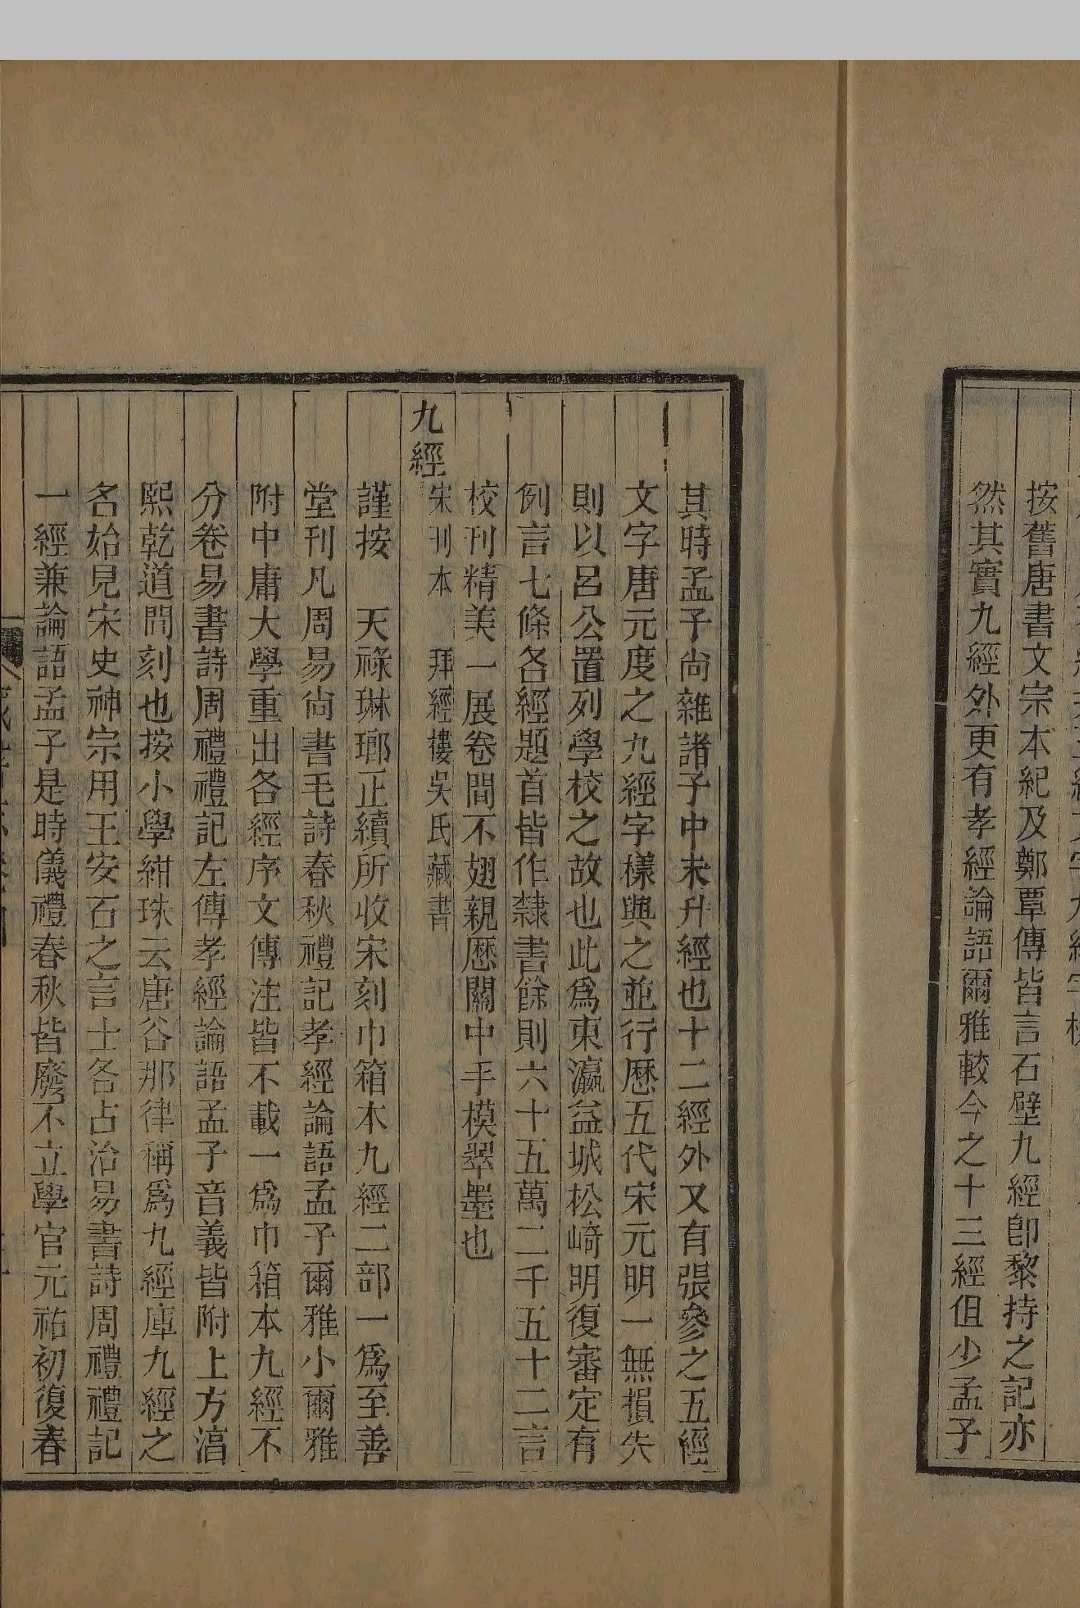 按舊唐書文宗本紀及鄭覃傳皆言石壁九經卽黎持之記亦
然其實九經外更有孝經論語爾雅較今之十三經但少孟子
其時孟子尙雜諸子中未升經也十二經外又有張參之五經
文字唐元度之九經字樣與之並行歷五代宋元明一無損失
則以呂公置列學校之故也此爲東瀛益城松崎明復審定有
例言七條各經題首皆作隸書餘則六十五萬二千五十二言
校刊精美一展卷間不翅親歷關中手模翠墨也
九經
宋刊本　拜經樓吳氏藏書
謹按　天祿琳瑯正續所收宋刻巾箱本九經二部一爲至善
堂刊凡周易尙書毛詩春秋禮記孝經論語孟子爾雅小爾雅
附中庸大學重出各經序文傳注皆不載一爲巾箱本九經不
分卷易書詩周禮禮記左傳孝經論語孟子音義皆附上方湻
熙乾道間刻也按小學紺珠云唐谷那律稱爲九經庫九經之
名始見宋史神宗用王安石之言士各占治易書詩周禮禮記
一經兼論語孟子是時儀禮春秋皆廢不立學官元祐初復春